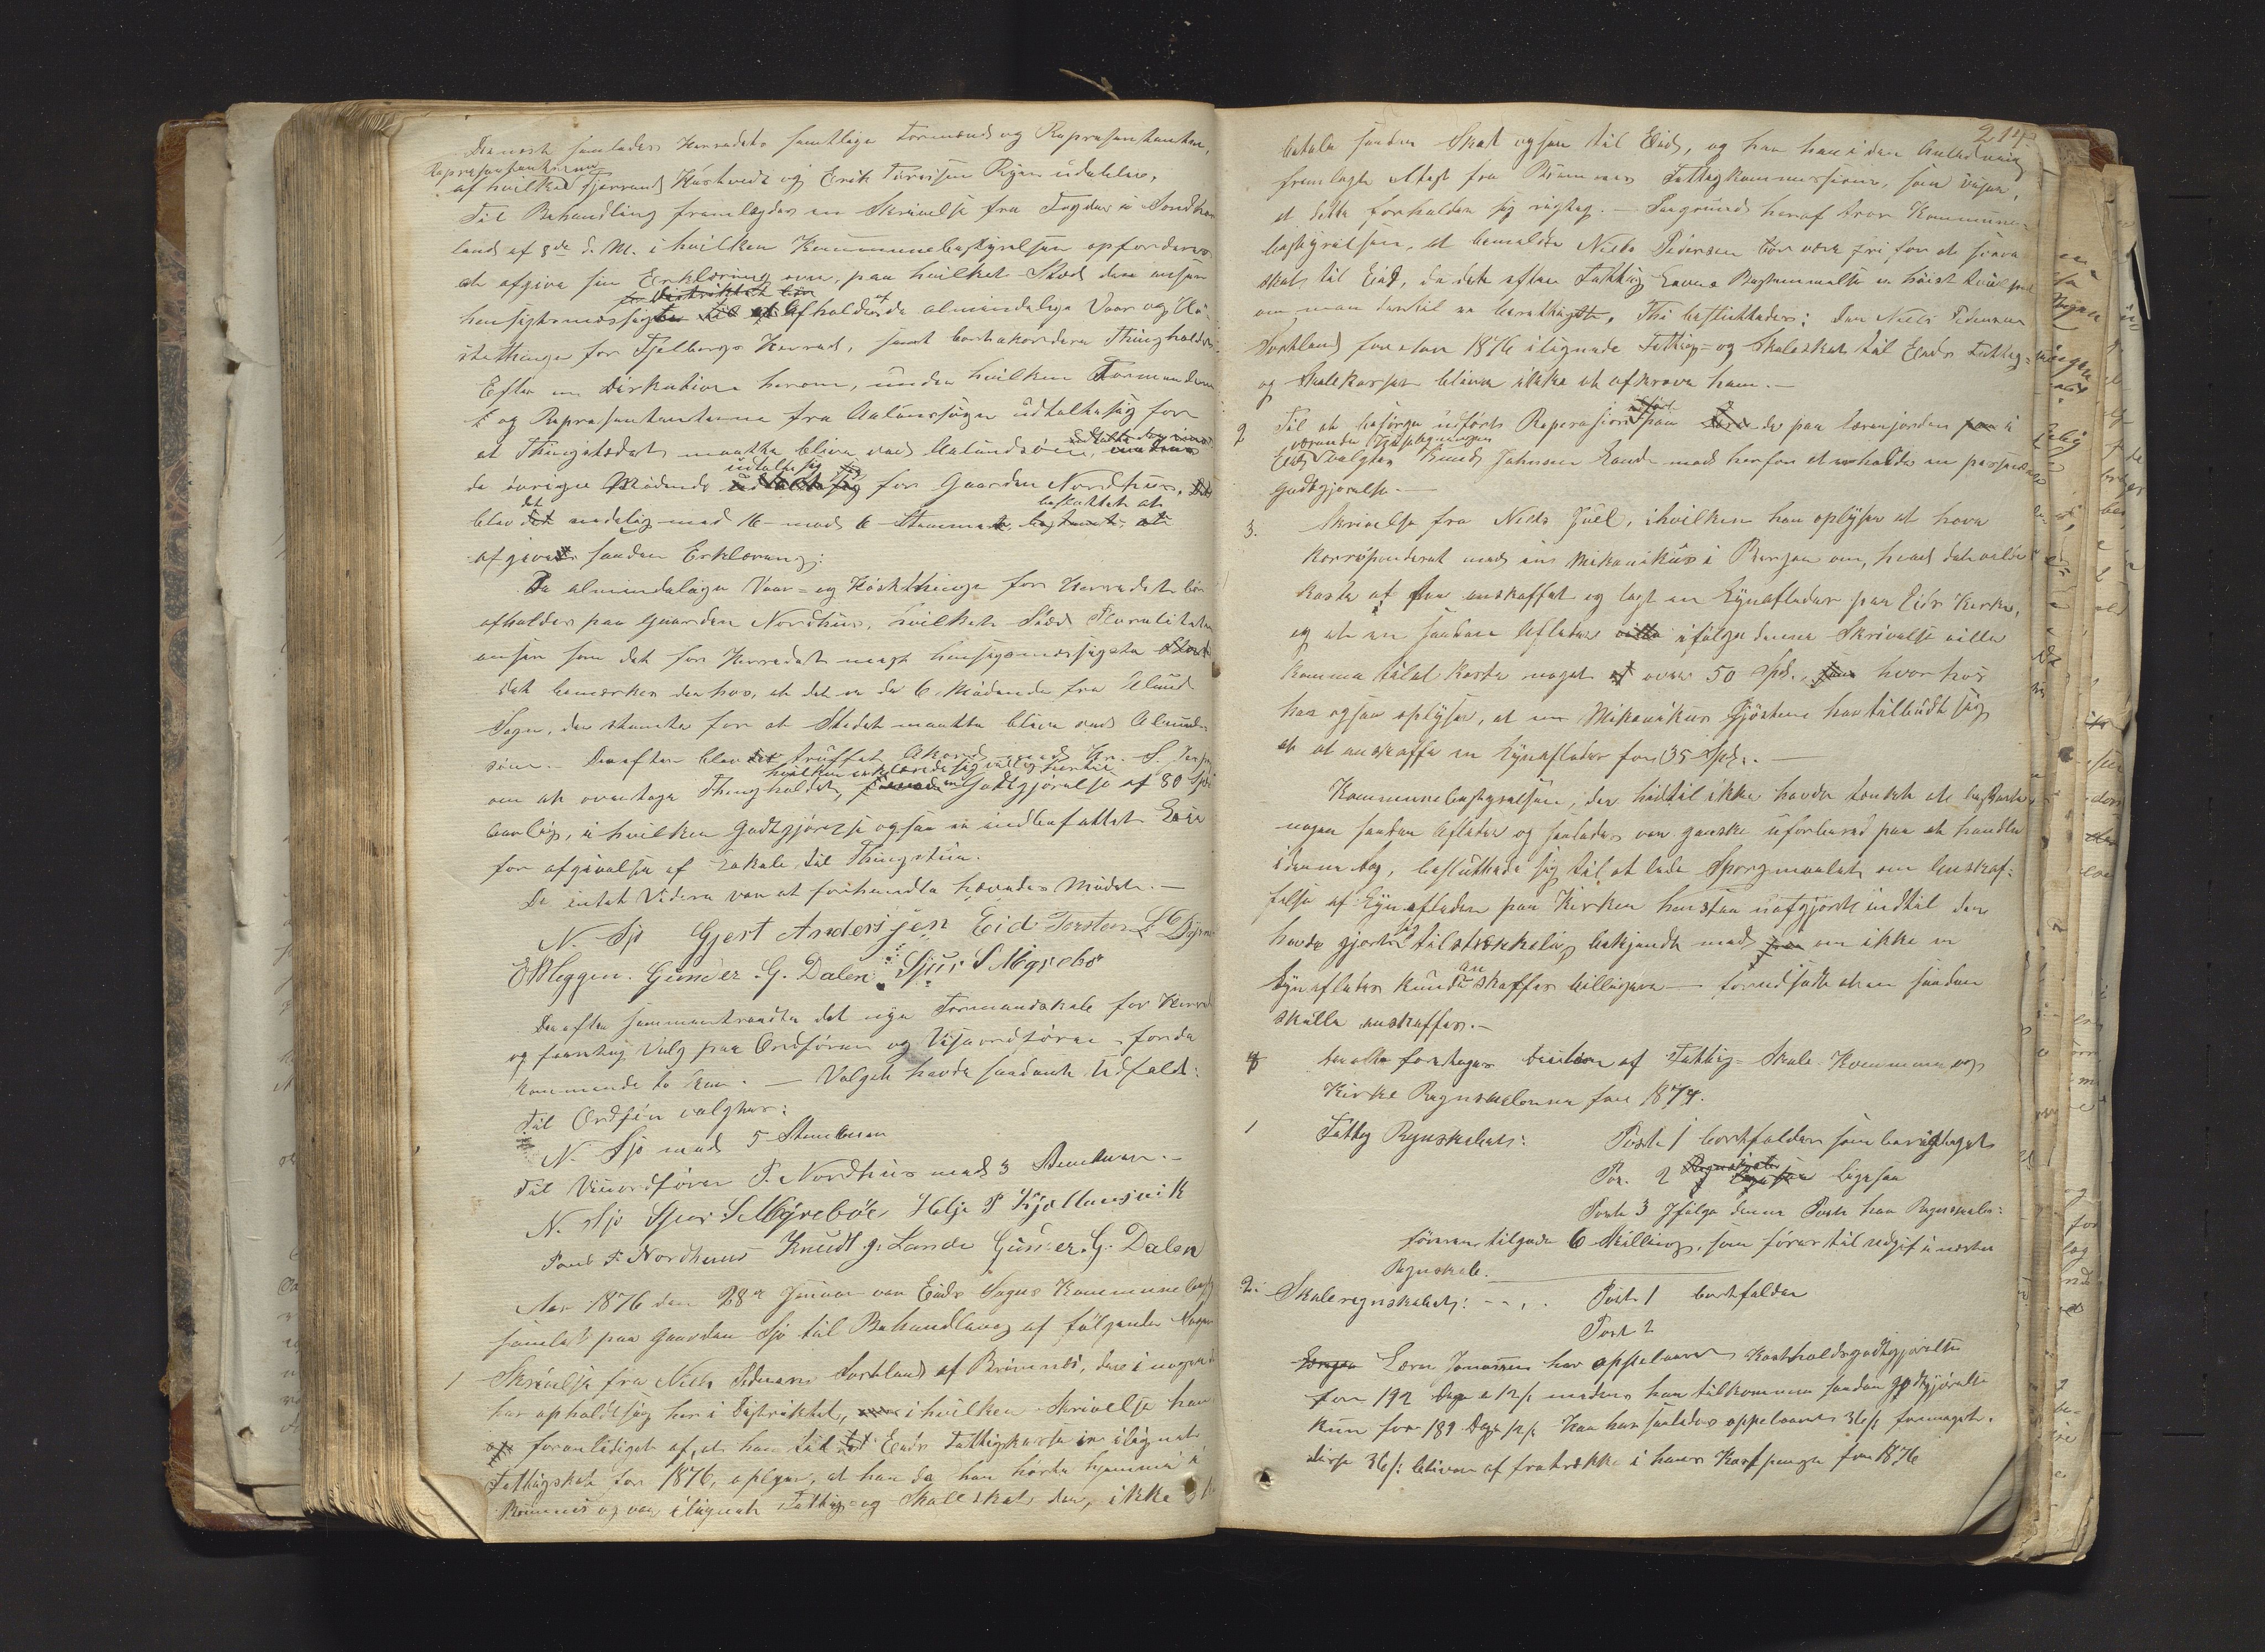 Dernæst samledes Herredets samtlige Formænd og Repræsentanter,
Repræsentanterne
af hvilke Tjerand Hustvedt og Erik Tørrisen Ryen udebleve.
Til Behandling fremlagdes en Skrivelse fra Fogden i Søndhor-
land af 3die d. M. i hvilken Kommunebestyrelsen opfordres
at afgive sin Erklæring om, paa hvilket Sted den anser
for Distriktet bør
hensigtsmæssigt til at Afholdes de almindelige Vaar og Hø-
stthinge for Fjelbergs Herred, samt bortakkordere Thingholdet.
Efter en Diskution herom, under hvilken Formændene
og Repræsentanterne fra Aalunssogn udtalte sig for
at Thingstedet maatte blive ved Aalundsøen,
de øvrige Mødende udtalte sig for Gaarden Nordhus,
blev det endelig med 16 mod 6 Stemmer besluttet at
afgive saadan Erklæring:
De almindelige Vaar- og Høstthinge for Herredet bør
afholdes paa Gaarden Nordhus, hvilket Sted Pluraliteten
anser som det for Herredet mest hensigtsmæssigste Sted
Det bemærkes derhos, at det er de 6 Mødende fra Ølund
Sogn, der stemte for at Stedet maatte blive ved Ølunds-
øen. Derefter blev det truffet Akord med Hr. S.
hvilken erklærede sig villig hertil
om at overtage Thingholdet, for en Godtgjørelse af 80 Spd
aarlig, i hvilken Godtgjørelse ogsaa er indbefattet Leie
for afgivelse af Lokale til Thingstue.
Da intet Videre var at forhandle hævedes Mødet.
N. Sjo Gjert Andersjen Eid Torsten
E Heggen. Gunder G. Dalen Sjur S Myrebø
Derefter sammentraadte det nye Formandskab for Herred
og foretog Valg paa Ordfører og Viseordfører for de
kommende to Aar. — Valget havde saadant Udfald:
Til Ordfør valgtes:
N. Sjo med 5 Stemmer
Til Viseordfører P. Nordhus med 3 Stemmer.
N. Sjo Sjur S Myrebøe Helje P Kjøllesvik
Poul P. Nordhuus Knudt J. Lande Gunder. G. Dalen
Aar 1876 den 28de Januar var Eids Sogns Kommunebesty
samlet paa Gaarden Sjo til Behandling af følgende Sager
1 Skrivelse fra Niels Pedersen Sortland af Bremnes, der i nogen tid
har opholdt sig her i Distriktet, i hvilken Skrivelse han
foranlediget af, at han til Eids Fattigkasse er ilignet
Fattigskat for 1876, oplyser, at han da han hørte hjemme i
Bremnes og var ilignet Fattig- og Skoleskat der, ikke
214
betale saadan Skat ogsaa til Eid, og han har i den Anledning
fremlagt Attest fra Bremnes Fattigkommission, som viser,
at dette forholder sig rigtig. — Paagrund heraf tror Kommune-
bestyrelsen, at bemeldte Niels Pedersen bør være fri for at svare
skat til Eid, da det efter Fattig-Lovens Bestemmelse er høist tvilsomt
om man dertil er berettiget. Thi besluttedes: Den Niels Pedersen
Sortland for Aar 1876 ilignede Fattig- og Skoleskat til Eids Fattig-
og Skolekasse bliver ikke at afkræve ham.
2 Til at besørge udført Reperasion paa de paa lærerjorden i
Eid værende Husebygninger
valgtes Knud Johnsen Lande mod herfor at erholde en passende
Godtgjørelse.
3. Skrivelse fra Niels Juel, i hvilken han oplyser at have
korrisponderet med en Mekanikus i Bergen om, hvad det vilde
koste at faa anskaffet og lagt en Lynafleder paa Eids Kirke,
og at en saadan Afleder ifølge denne Skrivelse vilde
komme til at koste noget over 50 Spd., hvorhos
han ogsaa oplyser, at en Mekanikus Gjøsteen har tilbudt sig
at anskaffe en Lynafleder for 35 Spd.
Kommunebestyrelsen, der hidtil ikke havde tænkt at bekoste
nogen saadan Afleder og saaledes var ganske uforbered paa at handle
i denne Sag, besluttede sig til at lade Spørgmaalet om Anskaf-
felse af Lynafleder paa Kirken henstaa uafgjordt indtil den
havde gjort sig tilstrækkelig bekjendt med om ikke en
Lynafleder kunde anskaffes billigere — forudsatt at en saadan
skulle anskaffes.
4 foretoges Decision af Fattig- Skole- Kommune og
Kirke Regnskaberne for 1874.
1 Fattig Regnskabet: Post 1 bortfalder som berigtiget
Po. 2 ligesaa
Post 3 Ifølge denne Post har Regnskabs-
føreren tilgode 6 Skilling, som føres til udgift i næste
Regnskab.
2. Skoleregnskabet: Post 1 bortfalder
Post 2
Lærer Jonassen har oppebaaret Kostholdsgodtgjørelse
for 192 Dage a 12 s medens han tilkommer saadan godtgjørelse
kun for 189 Dage 12 s. Han har saaledes oppebaaret 36 s formeget.
disse 36 s bliver at fratrække i hans Kostpenge for 1876